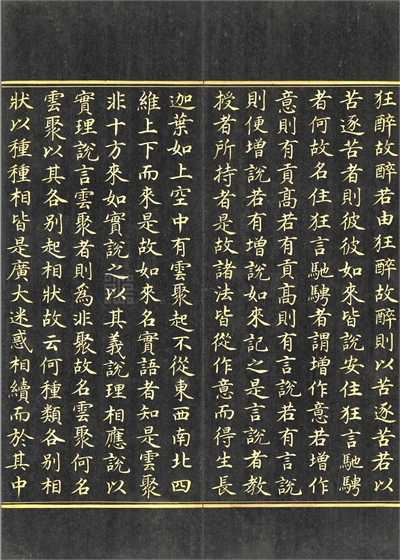 狂醉故醉若由狂醉故醉則以苦逐苦若以
苦逐苦者則彼彼如來皆說安住狂言馳騁
者何故名住狂言馳騁者謂增作意若增作
意則有貢高若有貢高則有言說若有言說
則便增說若有增說如來記之是言說者教
授者所持者是故諸法皆從作意而得生長
迦葉如上空中有雲聚起不從東西南北四
維上下而來是故如來名實語者知是雲聚
非十方來如實說之於其義說理相應說以
實理說言雲聚者則為非聚故名雲聚何名
雲聚以其各別起相狀故云何種類各別相
狀以種種相皆是廣大迷惑相續而於其中